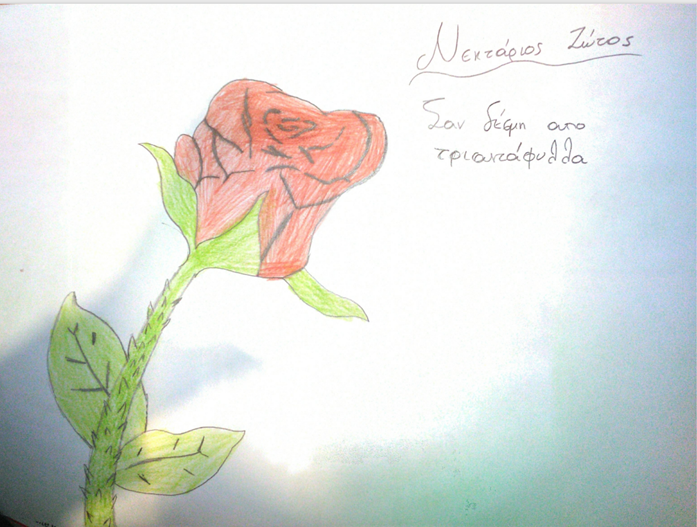 Νεκτάριος Ζώτος
Σαν δέσμη απο
τριαντάφυλλα